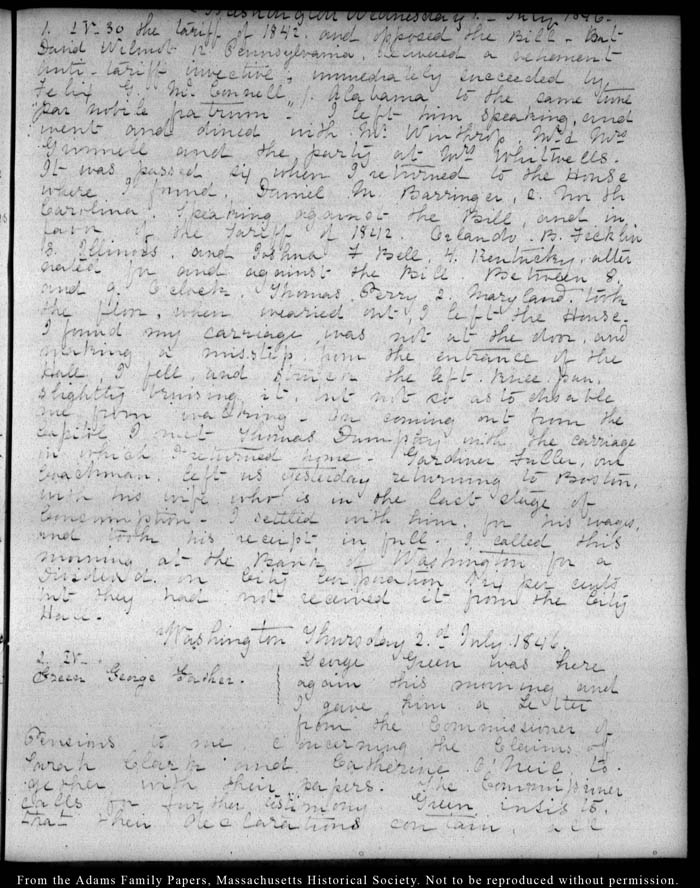 Washington Wednesday 1. July 1846.
1. IV-30 the tariff of 1842, and opposed the Bill - But
David Wilmot 12 Pennsylvania, delivered a vehement
anti-tariff invective, immediately succeeded by
Felix G. McConnell, 7. Alabama, to the same tune
"par nobile fratrum" - I left him speaking, and
went and dined with Mr Winthrop Mr & Mrs
Grinnell and the party at Mrs Whitwells.
It was passed six when I returned to the House
where I found Daniel M. Barringer, 2. North
Carolina, speaking against the Bill, and in
favor of the Tariff of 1842. Orlando B. Ficklin
3. Illinois, and Joshua F Bell, 4. Kentucky, alter
nated for and against the Bill Between 8,
and 9. O'Clock, Thomas Perry 2. Maryland, took
the floor, when wearied out, I left the House.
I found my carriage was not at the door, and
making a misstep from the entrance of the
Hall, I fell, and struck the left knee pan,
slightly bruising it, but not so as to disable
me from walking - On coming out from the
Capitol I met Thomas Dumpsy with the carriage
in which I returned home - Gardiner Fuller, our
Coachman, left us yesterday returning to Boston,
with his wife who is in the last stage of
Consumption - I settled with him, for his wages,
and took his receipt in full. I called this
morning at the Bank of Washington for a
Dividend on City Corporation Six per cents
but they had not received it from the City
Hall.
Washington Thursday 2.d July 1846.
2. IV-
Green George Fasher.
George Green was here
again this morning and
I gave him a Letter
from the Commissioner of
Pensions to me, concerning the Claims of
Sarah Clark and Catherine O'Neil, to-
gether with their papers. The Commissioner
calls for further testimony Green insists,
that their declarations contain, all
From the Adams Family Papers, Massachusetts Historical Society. Not to be reproduced without permission.